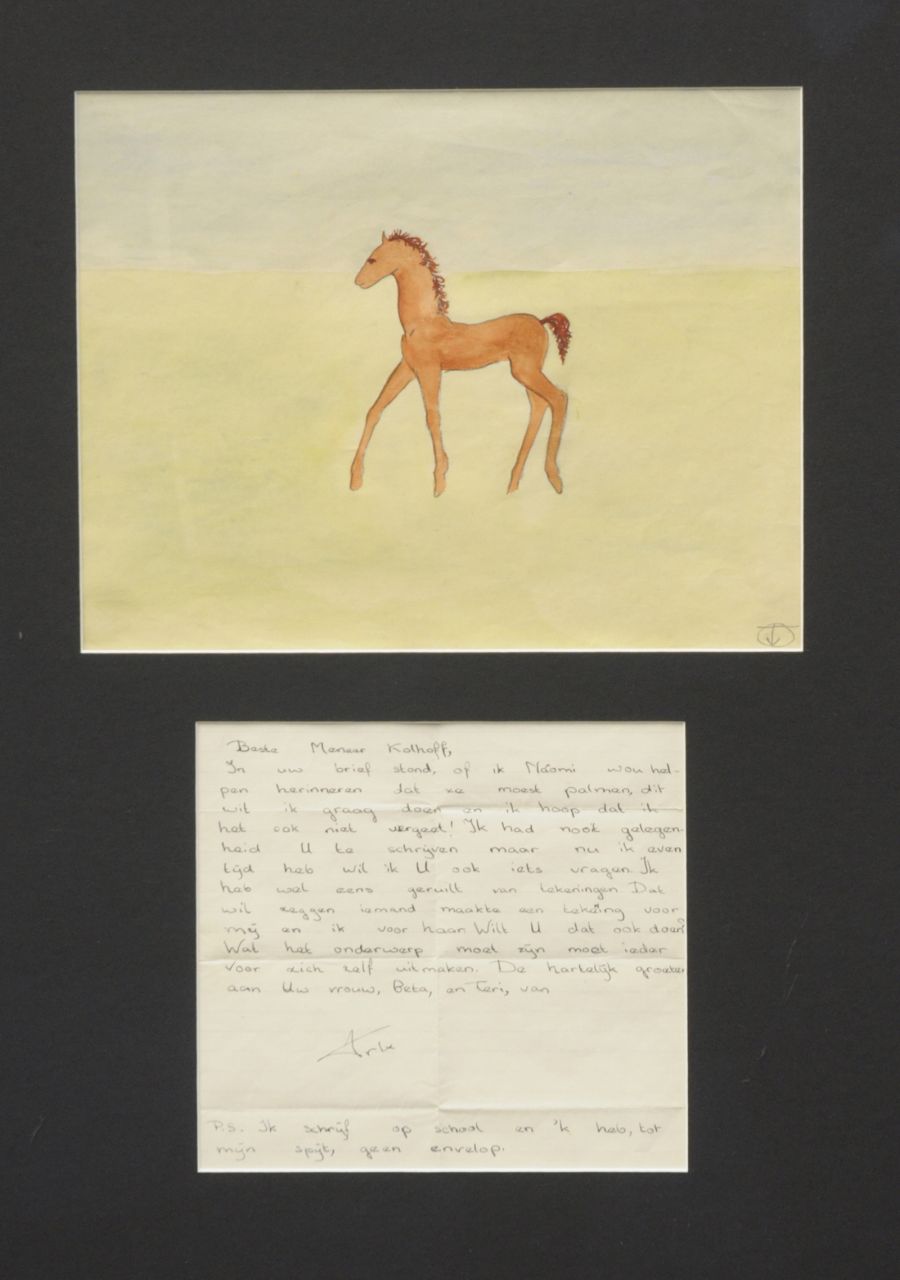 Beste Meneer Kolhoff,
In uw brief stond, of ik Náomi wou hel-
pen herinneren dat ze moest palmen, dit
wil ik graag doen en ik hoop dat ik
het ook niet vergeet! Ik had nooit gelegen-
heid U te schrijven maar nu ik even
tijd heb wil ik U ook iets vragen. Ik
heb wel eens geruilt van tekeningen Dat
wil zeggen iemand maakte een tekeing voor
mij en ik voor haar Wilt U dat ook doen?
Wat het onderwerp moet zijn moet ieder
voor zich zelf uitmaken. De hartelijk groeten
aan Uw vrouw, Beta, en Teri, van
P.S. Ik schrijf op school en 'k heb, tot
mijn spijt, geen envelop.